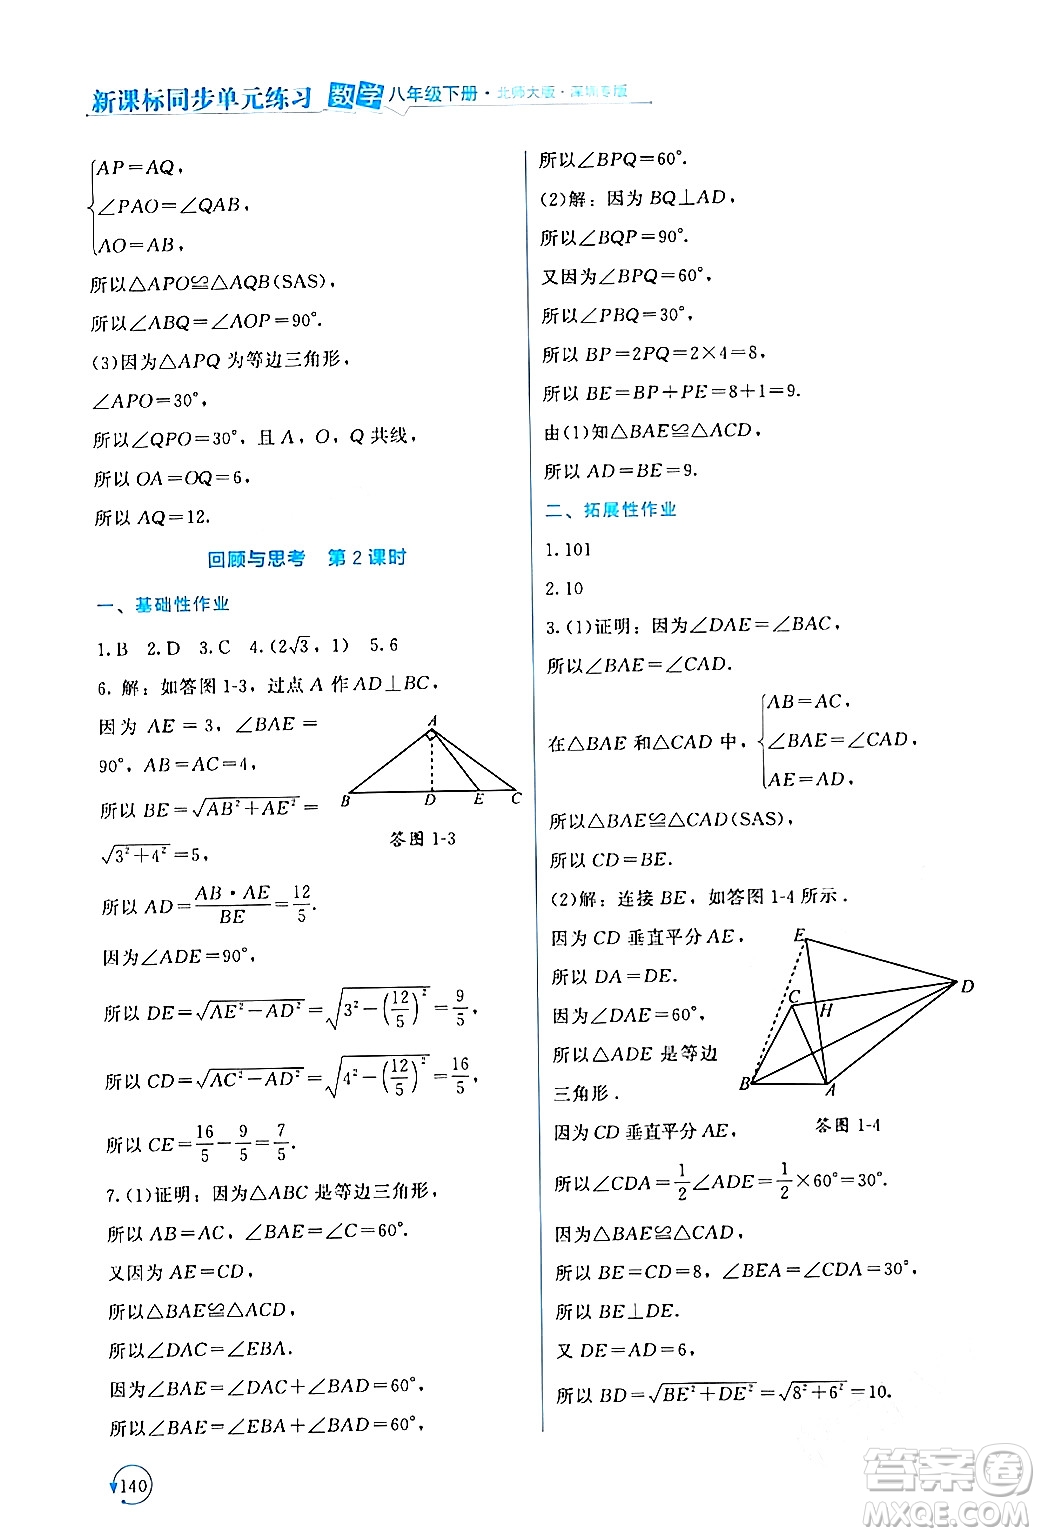 新课标同步单元练习 数学 八年级下册·北师大版·深圳专版
AP=AQ,
∠PAO=∠QAB,
AO=AB,
所以△APO≌△AQB(SAS),
所以∠ABQ=∠AOP=90°.
(3)因为△APQ 为等边三角形,
∠APO=30°,
所以∠QPO=30°,且 A,O,Q 共线,
所以 OA=OQ=6,
所以 AQ=12.
回顾与思考 第 2 课时
一、基础性作业
1.B 2.D 3.C 4.(2√3,1) 5.6
6.解:如答图 1-3,过点 A 作 AD⊥BC,
因为 AE=3,∠BAE=
90°,AB=AC=4,
所以 BE=√(AB²+AE²)=
√(3²+4²)=5,
A
B D E C
答图 1-3
所以 AD=(AB·AE)/BE=12/5.
因为∠ADE=90°,
所以 DE=√(AE²-AD²)=√(3²-(12/5)²)=9/5,
所以 CD=√(AC²-AD²)=√(4²-(12/5)²)=16/5,
所以 CE=16/5-9/5=7/5.
7.(1)证明:因为△ABC 是等边三角形,
所以 AB=AC,∠BAE=∠C=60°,
又因为 AE=CD,
所以△BAE≌△ACD,
所以∠DAC=∠EBA.
因为∠BAE=∠DAC+∠BAD=60°,
所以∠BAE=∠EBA+∠BAD=60°,
所以∠BPQ=60°.
(2)解:因为 BQ⊥AD,
所以∠BQP=90°.
又因为∠BPQ=60°,
所以∠PBQ=30°,
所以 BP=2PQ=2×4=8,
所以 BE=BP+PE=8+1=9.
由(1)知△BAE≌△ACD,
所以 AD=BE=9.
二、拓展性作业
1.101
2.10
3.(1)证明:因为∠DAE=∠BAC,
所以∠BAE=∠CAD.
在△BAE 和△CAD 中,
AB=AC,
∠BAE=∠CAD,
AE=AD,
所以△BAE≌△CAD(SAS),
所以 CD=BE.
(2)解:连接 BE,如答图 1-4 所示.
因为 CD 垂直平分 AE,
所以 DA=DE.
因为∠DAE=60°,
所以△ADE 是等边
三角形.
E
D
C
H
B
A
答图 1-4
因为 CD 垂直平分 AE,
所以∠CDA=1/2∠ADE=1/2×60°=30°.
因为△BAE≌△CAD,
所以 BE=CD=8,∠BEA=∠CDA=30°,
所以 BE⊥DE.
又 DE=AD=6,
所以 BD=√(BE²+DE²)=√(8²+6²)=10.
140
答案圈
MXQE.COM